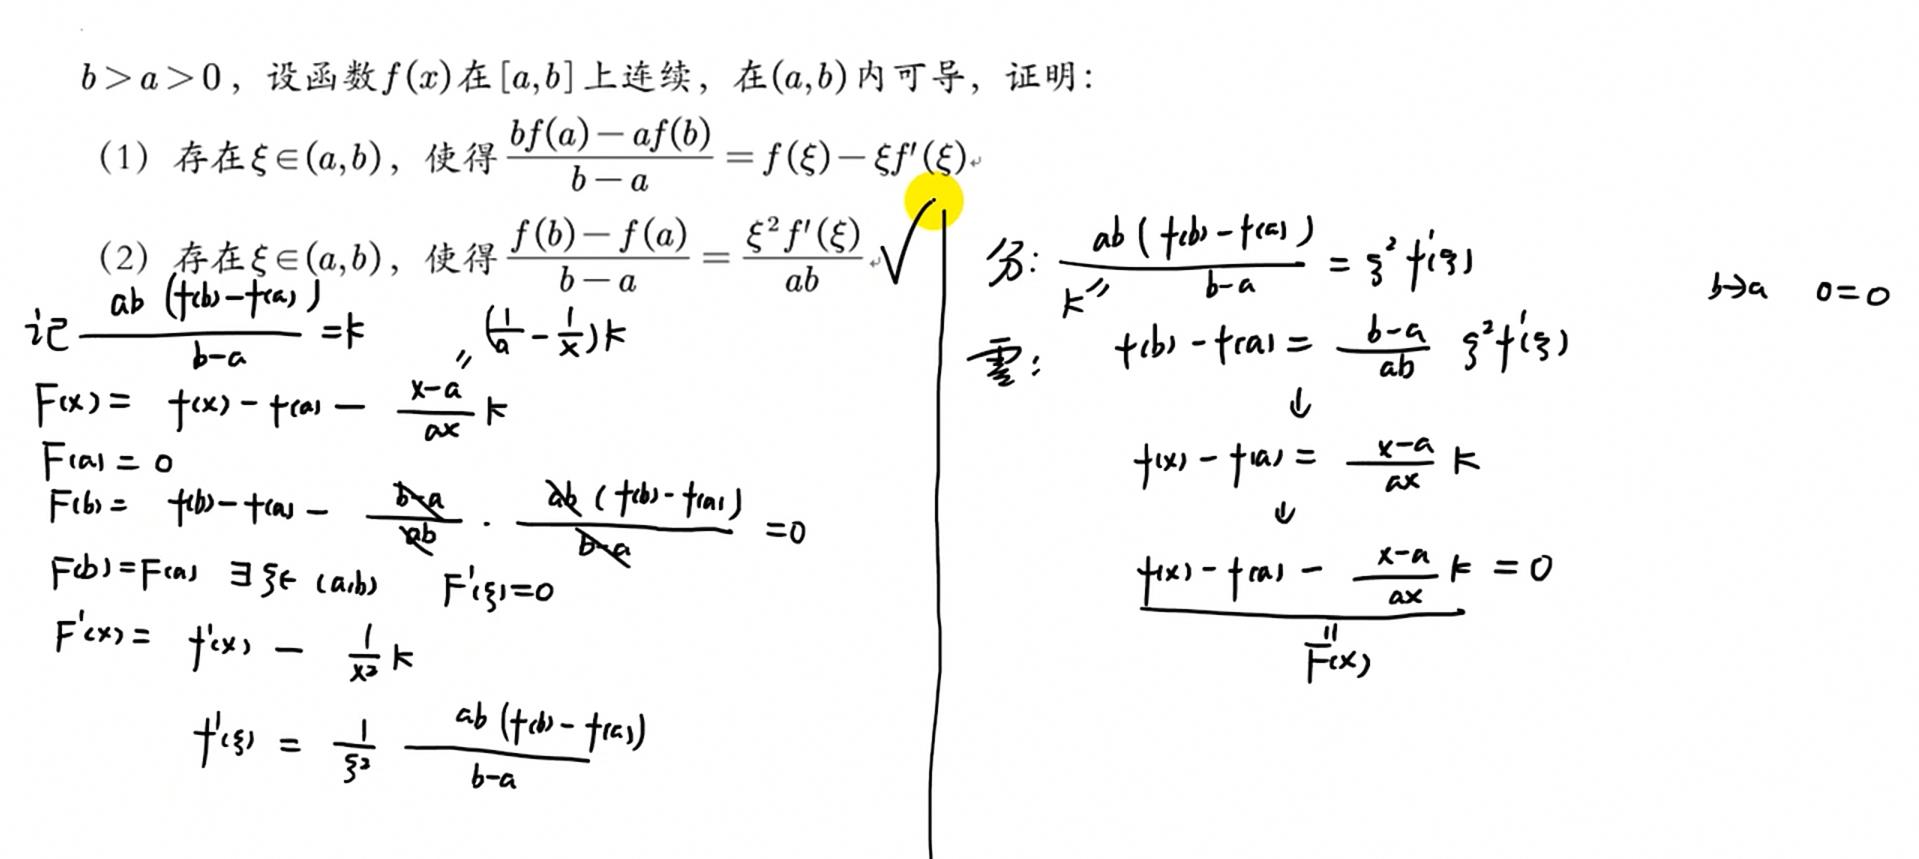 b>a>0，设函数f(x)在[a,b]上连续，在(a,b)内可导，证明：
（1）存在ξ∈(a,b)，使得 \frac{bf(a)-af(b)}{b-a}=f(ξ)-ξf'(ξ)
（2）存在ξ∈(a,b)，使得 \frac{f(b)-f(a)}{b-a}=\frac{ξ²f'(ξ)}{ab} ✓
记 \frac{ab(f(b)-f(a))}{b-a}=k
"(\frac{1}{a}-\frac{1}{x})k
F(x)= f(x)-f(a)-\frac{x-a}{ax}k
F(a)=0
F(b)= f(b)-f(a)-\frac{b-a}{ab}·\frac{ab(f(b)-f(a))}{b-a}=0
F(b)=F(a) ∃ξ∈(a,b) F'(ξ)=0
F'(x)= f'(x)-\frac{1}{x²}k
f'(ξ)=\frac{1}{ξ²}\frac{ab(f(b)-f(a))}{b-a}
分: \frac{ab(f(b)-f(a))}{b-a}=ξ²f'(ξ)
k"
b→a 0=0
需: f(b)-f(a)=\frac{b-a}{ab}ξ²f'(ξ)
↓
f(x)-f(a)=\frac{x-a}{ax}k
↓
f(x)-f(a)-\frac{x-a}{ax}k=0
"
F(x)